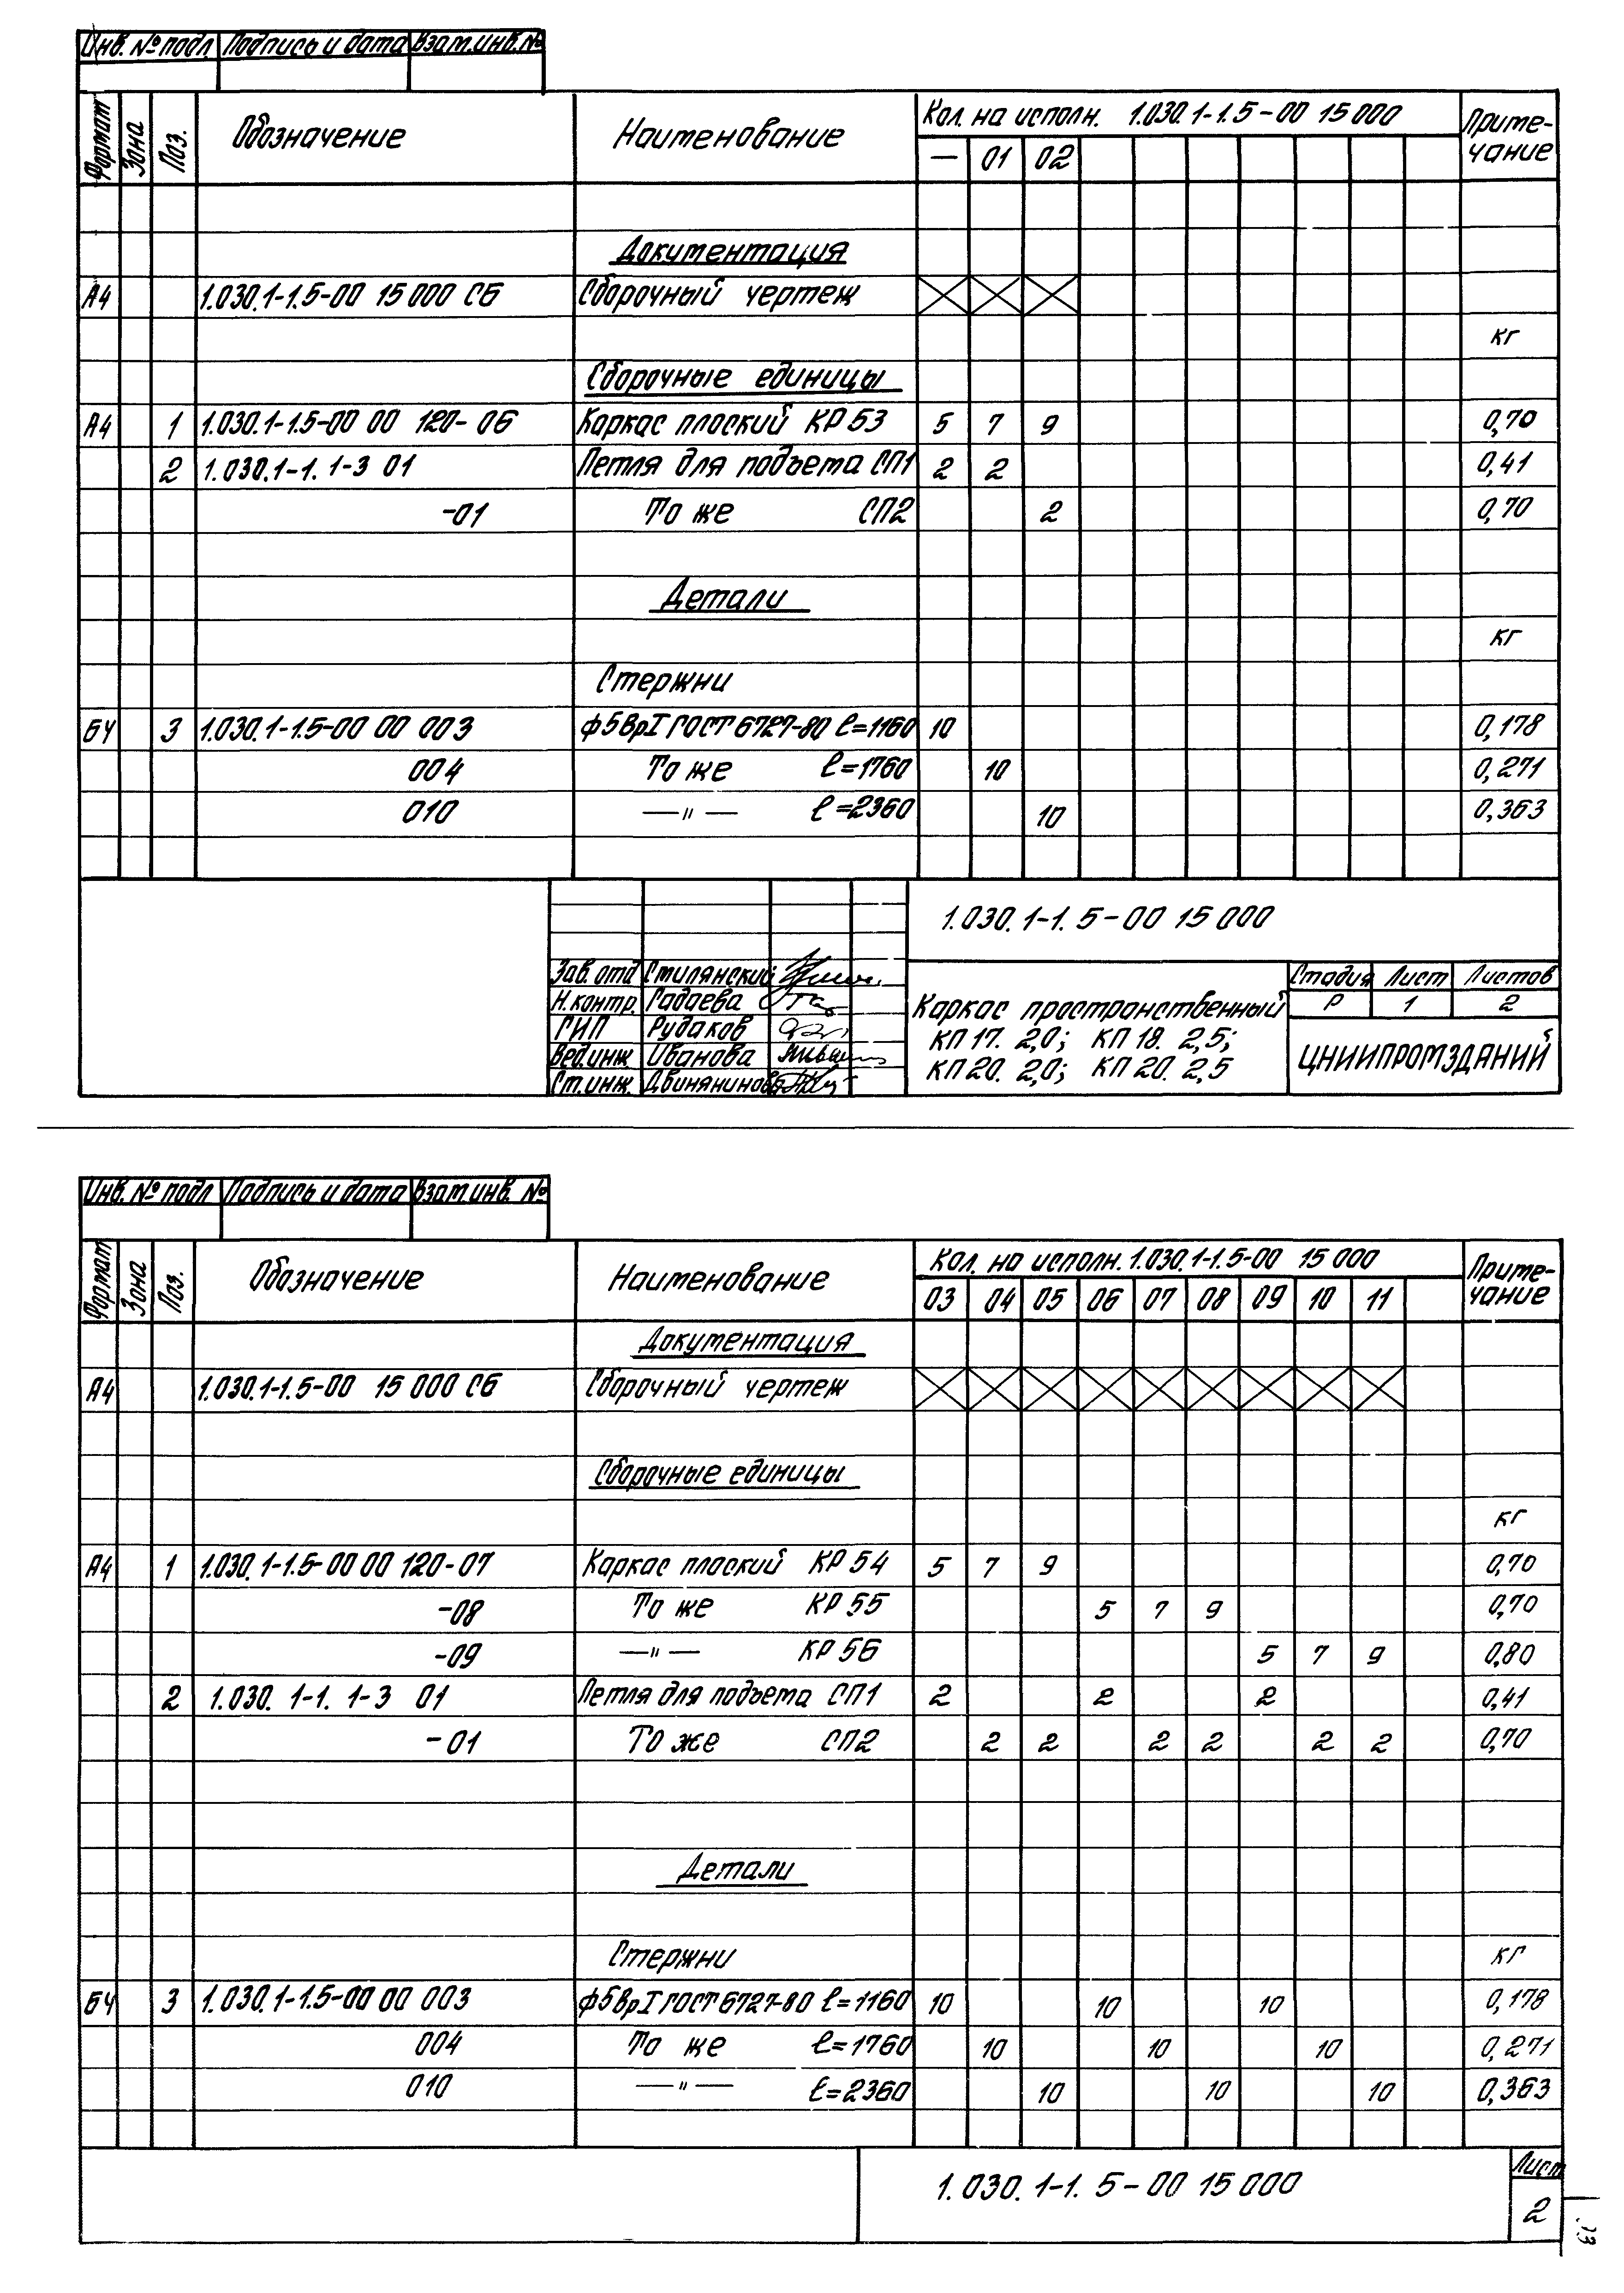 Инв. № подл. Подпись и дата Взам.инв.№
Формат Зона Поз. Обозначение Наименование Кол. на исполн. 1.030.1-1.5-00 15 000 Приме-
чание
— 01 02
Документация
А4 1.030.1-1.5-00 15 000 СБ Сборочный чертеж
кг
Сборочные единицы
А4 1 1.030.1-1.5-00 00 120-06 Каркас плоский КР 53 5 7 9 0,70
2 1.030.1-1.1-3 01 Петля для подъема СП1 2 2 0,41
-01 То же СП2 2 0,70
Детали
кг
Стержни
БЧ 3 1.030.1-1.5-00 00 003 ф5ВрI ГОСТ 6727-80 ℓ=1160 10 0,178
004 То же ℓ=1760 10 0,271
010 —"— ℓ=2360 10 0,363
1.030.1-1.5-00 15 000
Зав. отд Стилянский
Н.контр. Гадаева
ГИП Рудаков
Вед.инж Иванова
Ст.инж. Двинянинова
Каркас пространственный
КП 17. 2,0; КП 18. 2,5;
КП 20. 2,0; КП 20. 2,5
Стадия Лист Листов
Р 1 2
ЦНИИПРОМЗДАНИЙ
Инв. № подл Подпись и дата Взам.инв. №
Формат Зона Поз. Обозначение Наименование Кол. на исполн. 1.030.1-1.5-00 15 000 Приме-
чание
03 04 05 06 07 08 09 10 11
Документация
А4 1.030.1-1.5-00 15 000 СБ Сборочный чертеж
Сборочные единицы
кг
А4 1 1.030.1-1.5-00 00 120-07 Каркас плоский КР 54 5 7 9 0,70
-08 То же КР 55 5 7 9 0,70
-09 —"— КР 56 5 7 9 0,80
2 1.030.1-1.1-3 01 Петля для подъема СП1 2 2 2 0,41
-01 То же СП2 2 2 2 2 2 2 0,70
Детали
Стержни кг
БЧ 3 1.030.1-1.5-00 00 003 ф5ВрI ГОСТ 6727-80 ℓ=1160 10 10 10 0,178
004 То же ℓ=1760 10 10 10 0,271
010 —"— ℓ=2360 10 10 10 0,363
1.030.1-1.5-00 15 000
Лист
2